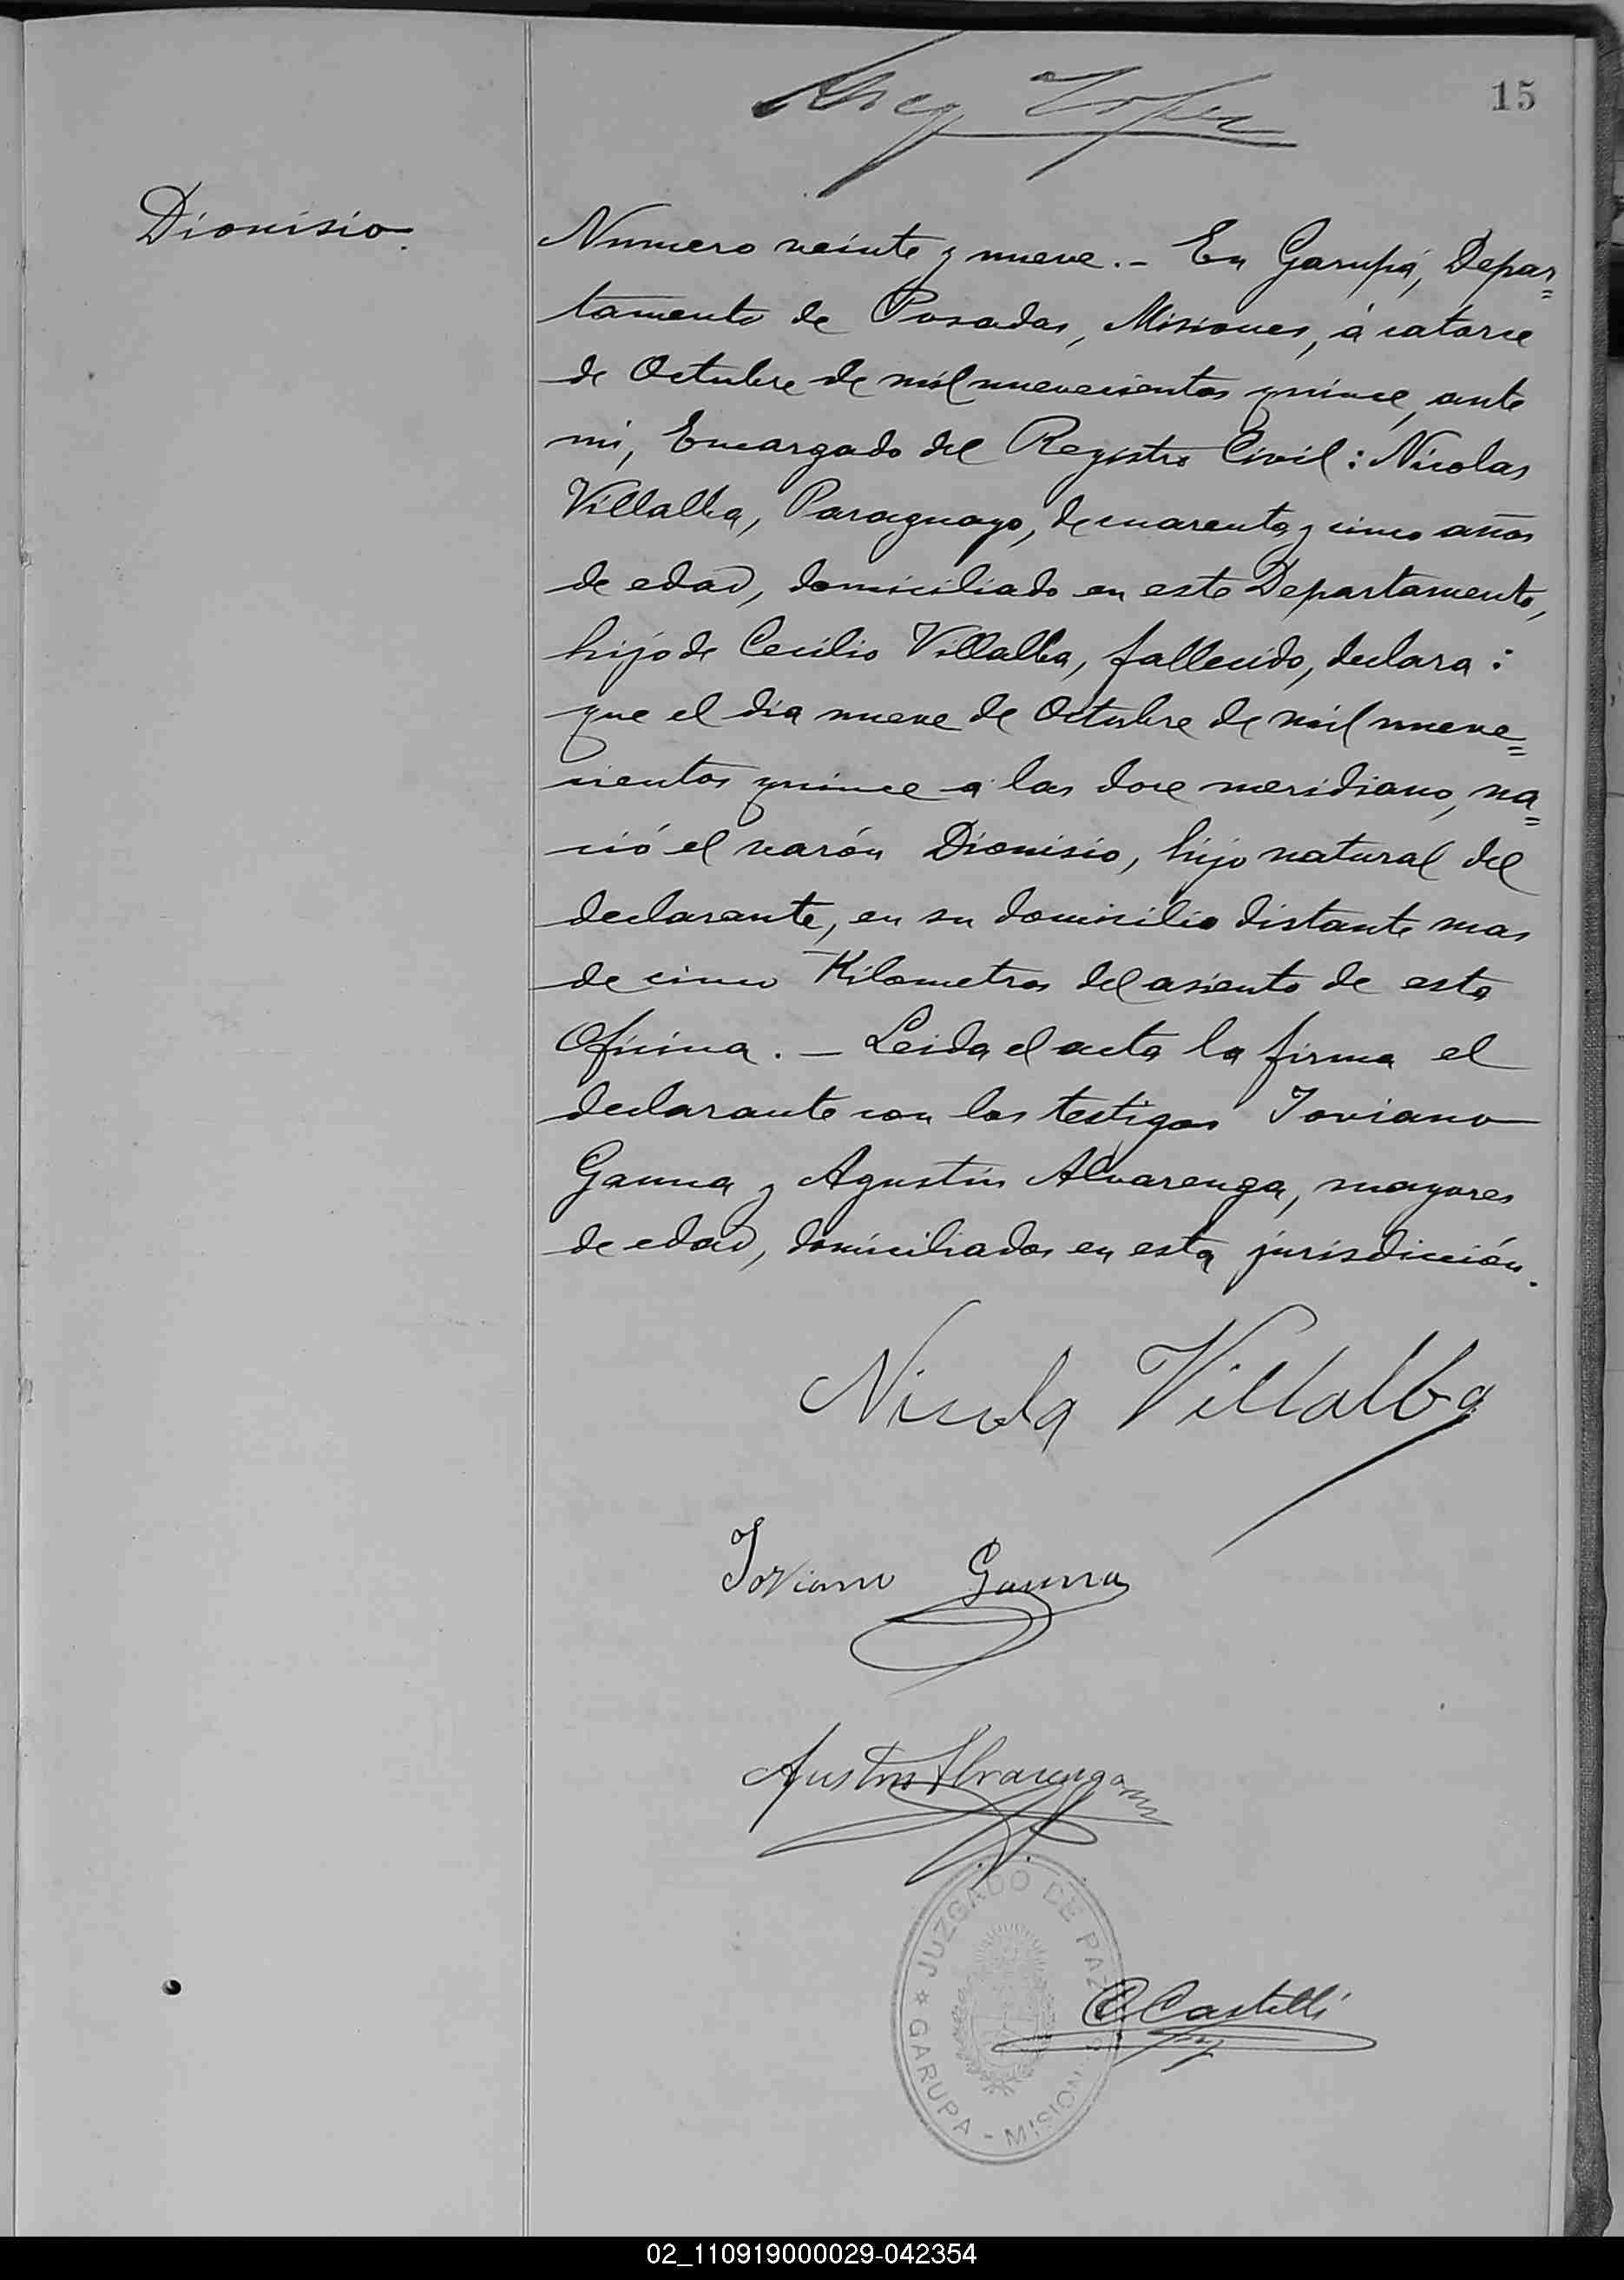 15
Dionisio.
Numero veinte y nueve.- En Garupá, Depar=
tamento de Posadas, Misiones, á catorce
de Octubre de mil nuevecientos quince, ante
mi, Encargado del Registro Civil: Nicolas
Villalba, Paraguayo, de cuarenta y cinco años
de edad, domiciliado en este Departamento,
hijo de Cecilio Villalba, fallecido, declara:
que el dia nueve de Octubre de mil nueve=
cientos quince a las doce meridiano, na=
ció el varón Dionisio, hijo natural del
declarante, en su domicilio distante mas
de cinco Kilometros del asiento de esta
Oficina. — Leida el acta la firma el
declarante con los testigos Joviano
Gauna y Agustín Alvarenga, mayores
de edad, domiciliados en esta jurisdicción.
Nicola Villalba
Joviano Gauna
Agustin Alvarenga
JUZGADO DE PAZ
C. Castelli
GARUPA - MISIONES
02_110919000029-042354